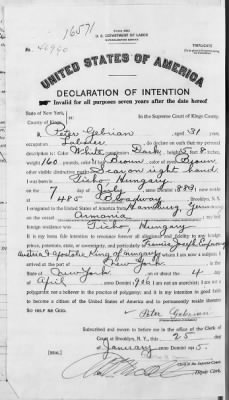 16571
U. S. DEPARTMENT OF LABOR
NATURALIZATION SERVICE
TRIPLICATE
UNITED STATES OF AMERICA
DECLARATION OF INTENTION
Invalid for all purposes seven years after the date hereof
State of New York,
In the Supreme Court of Kings County.
County of Kings
I, Peter Gebrian, aged 31 years,
occupation Laborer, do declare on oath that my personal
description is: Color White, complexion Dark, height 5 feet 8 inches,
weight 160 pounds, color of hair Brown, color of eyes Brown
other visible distinctive marks Scar on right hand
I was born in Ticho, Hungary
on the 7 day of July, anno Domini 1883; I now reside
at 485 Broadway, Brooklyn, N. Y.
I emigrated to the United States of America from Hamburg, Germany
on the vessel Armania; my last
foreign residence was Ticho, Hungary
It is my bona fide intention to renounce forever all allegiance and fidelity to any foreign
prince, potentate, state, or sovereignty, and particularly to Francis Joseph Emperor of
Austria & Apostolic King of Hungary, of whom I am now a subject; I
arrived at the port of New York, in the
State of New York, on or about the 4 day
of April, anno Domini 1906; I am not an anarchist; I am not a
polygamist nor a believer in the practice of polygamy; and it is my intention in good faith
to become a citizen of the United States of America and to permanently reside therein:
SO HELP ME GOD.
Peter Gebrian
Subscribed and sworn to before me in the office of the Clerk of
Court at Brooklyn, N. Y., this 25 day
of January, anno Domini 1915.
[SEAL]
Clerk of the Supreme Court.
Clerk.